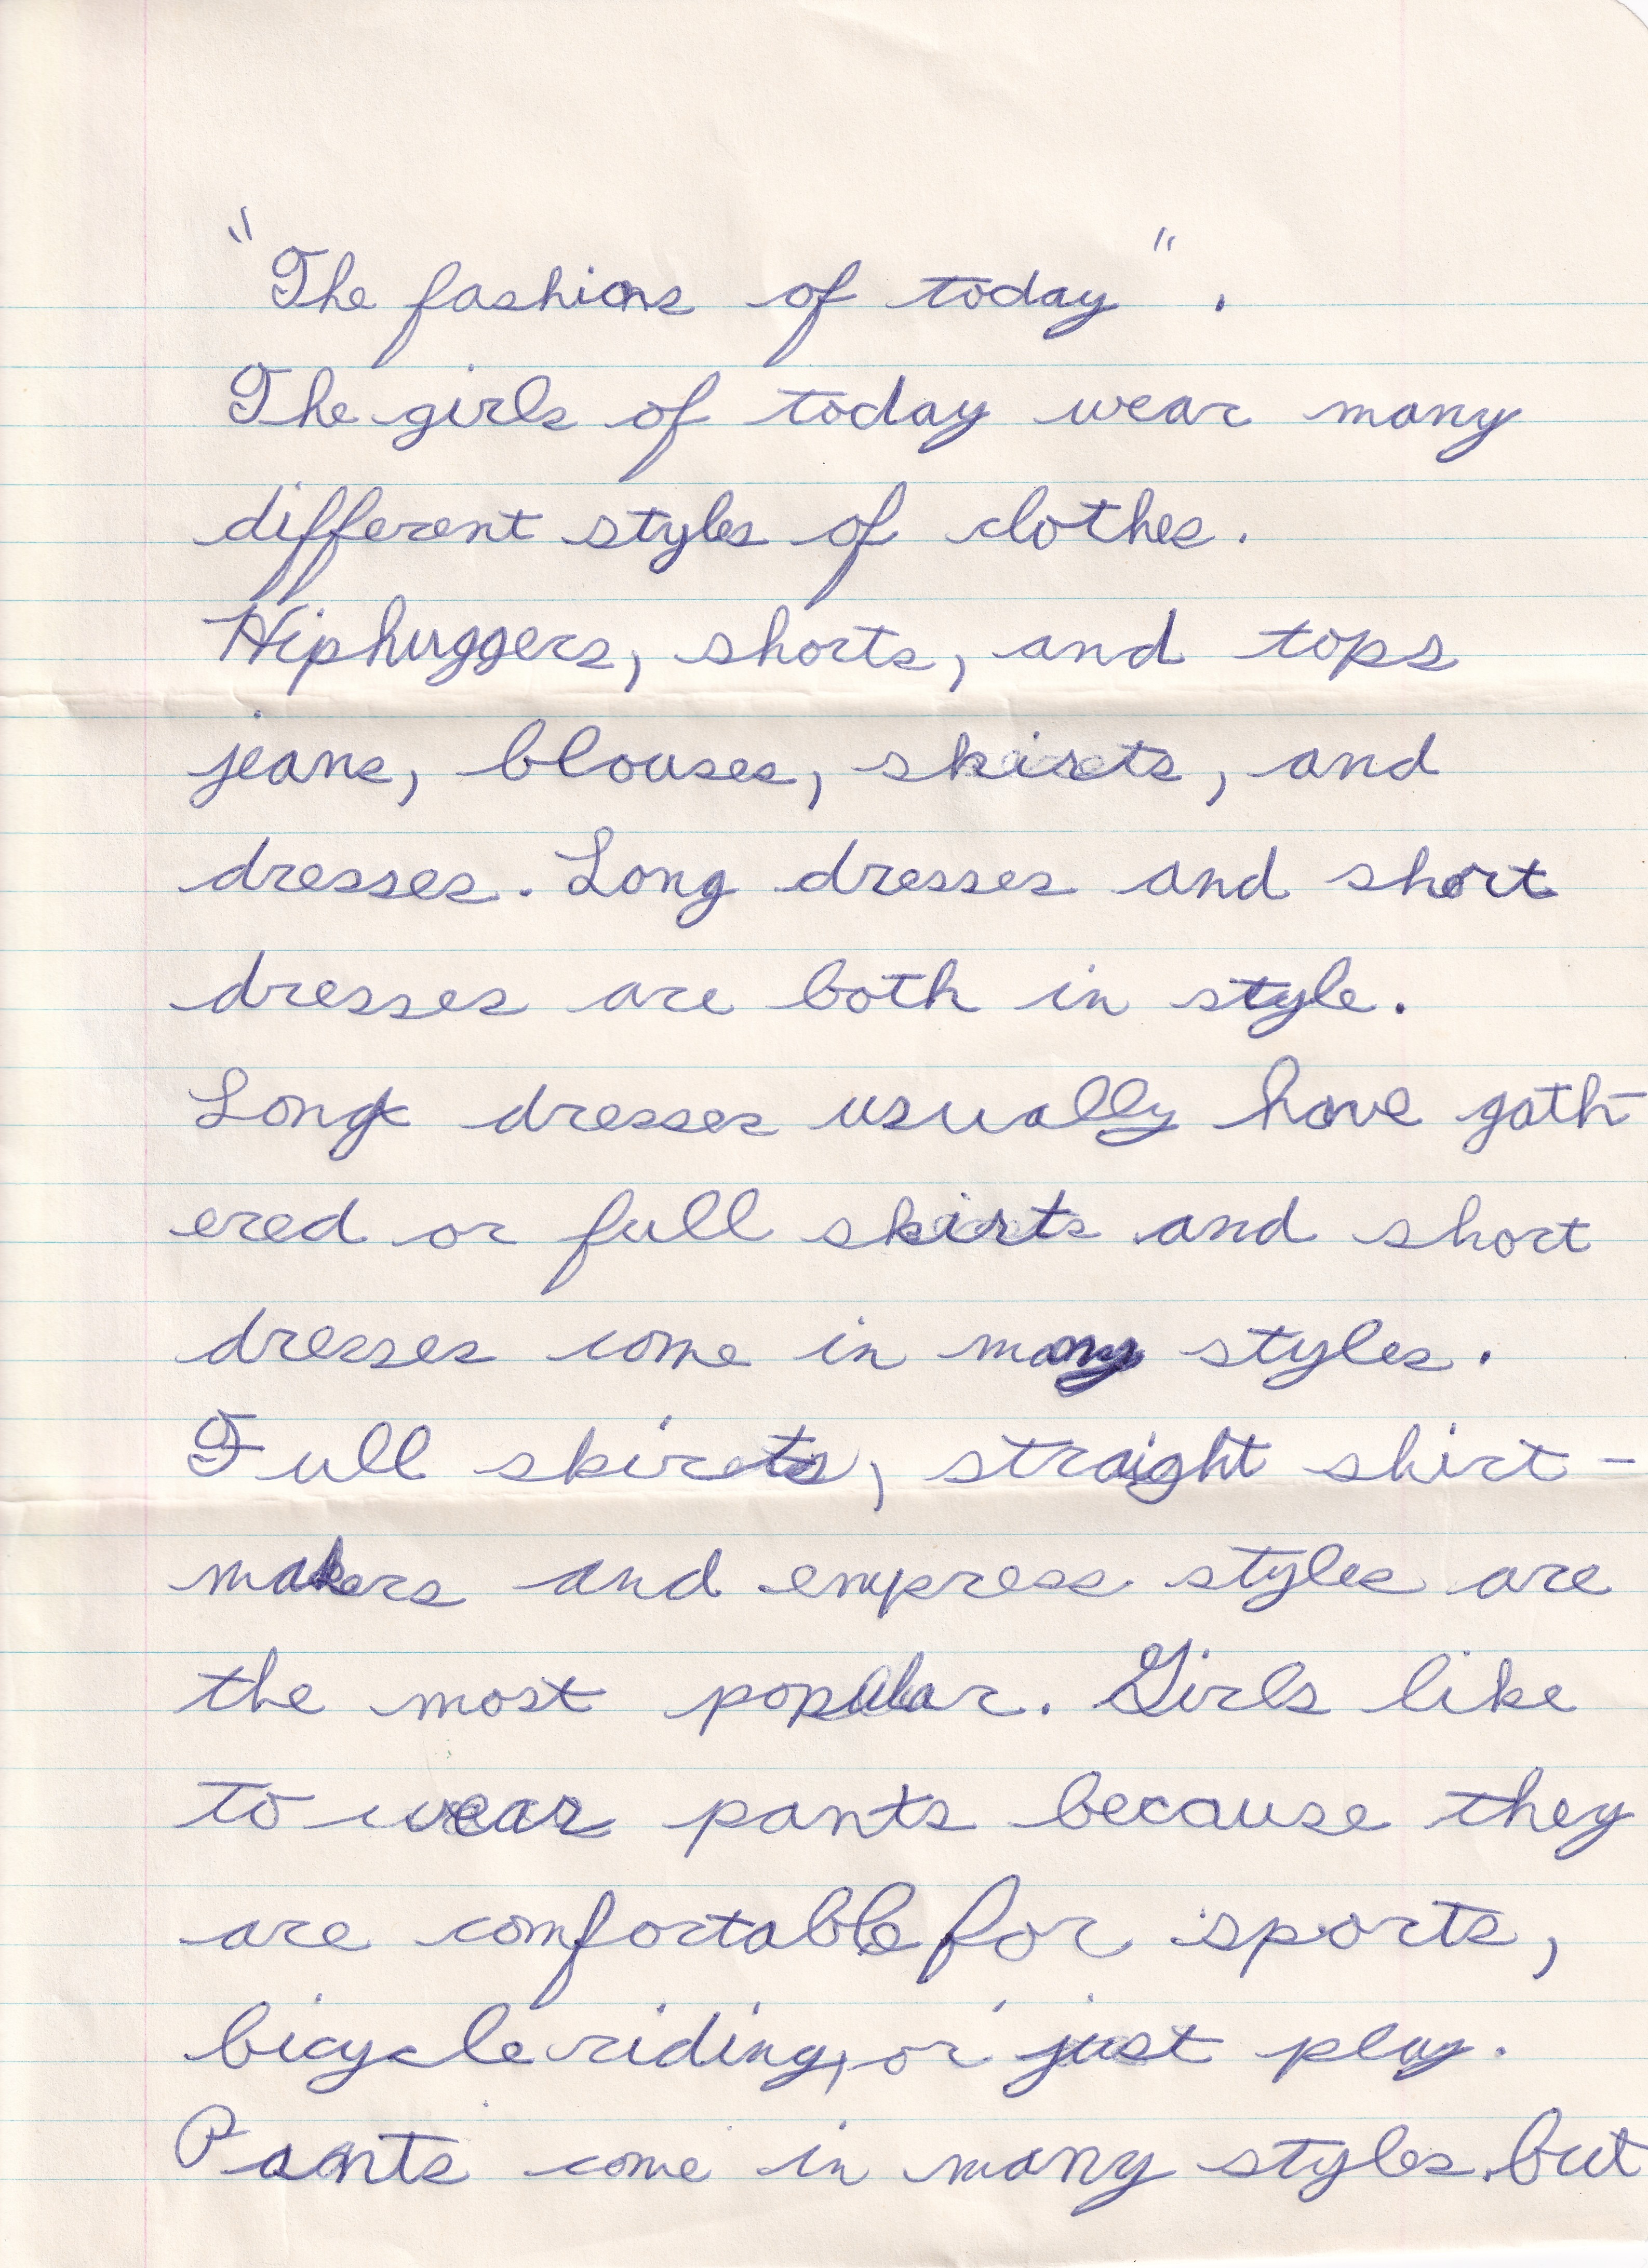 "The fashions of today".
The girls of today wear many
different styles of clothes.
Hiphuggers, shorts, and tops
jeans, blouses, skirts, and
dresses. Long dresses and short
dresses are both in style.
Long dresses usually have gath-
ered or full skirts and short
dresses come in many styles.
Full skirts, straight shirt-
makers and empress styles are
the most popular. Girls like
to wear pants because they
are comfortable for sports,
bicycle riding, or just play.
Pants come in many styles but